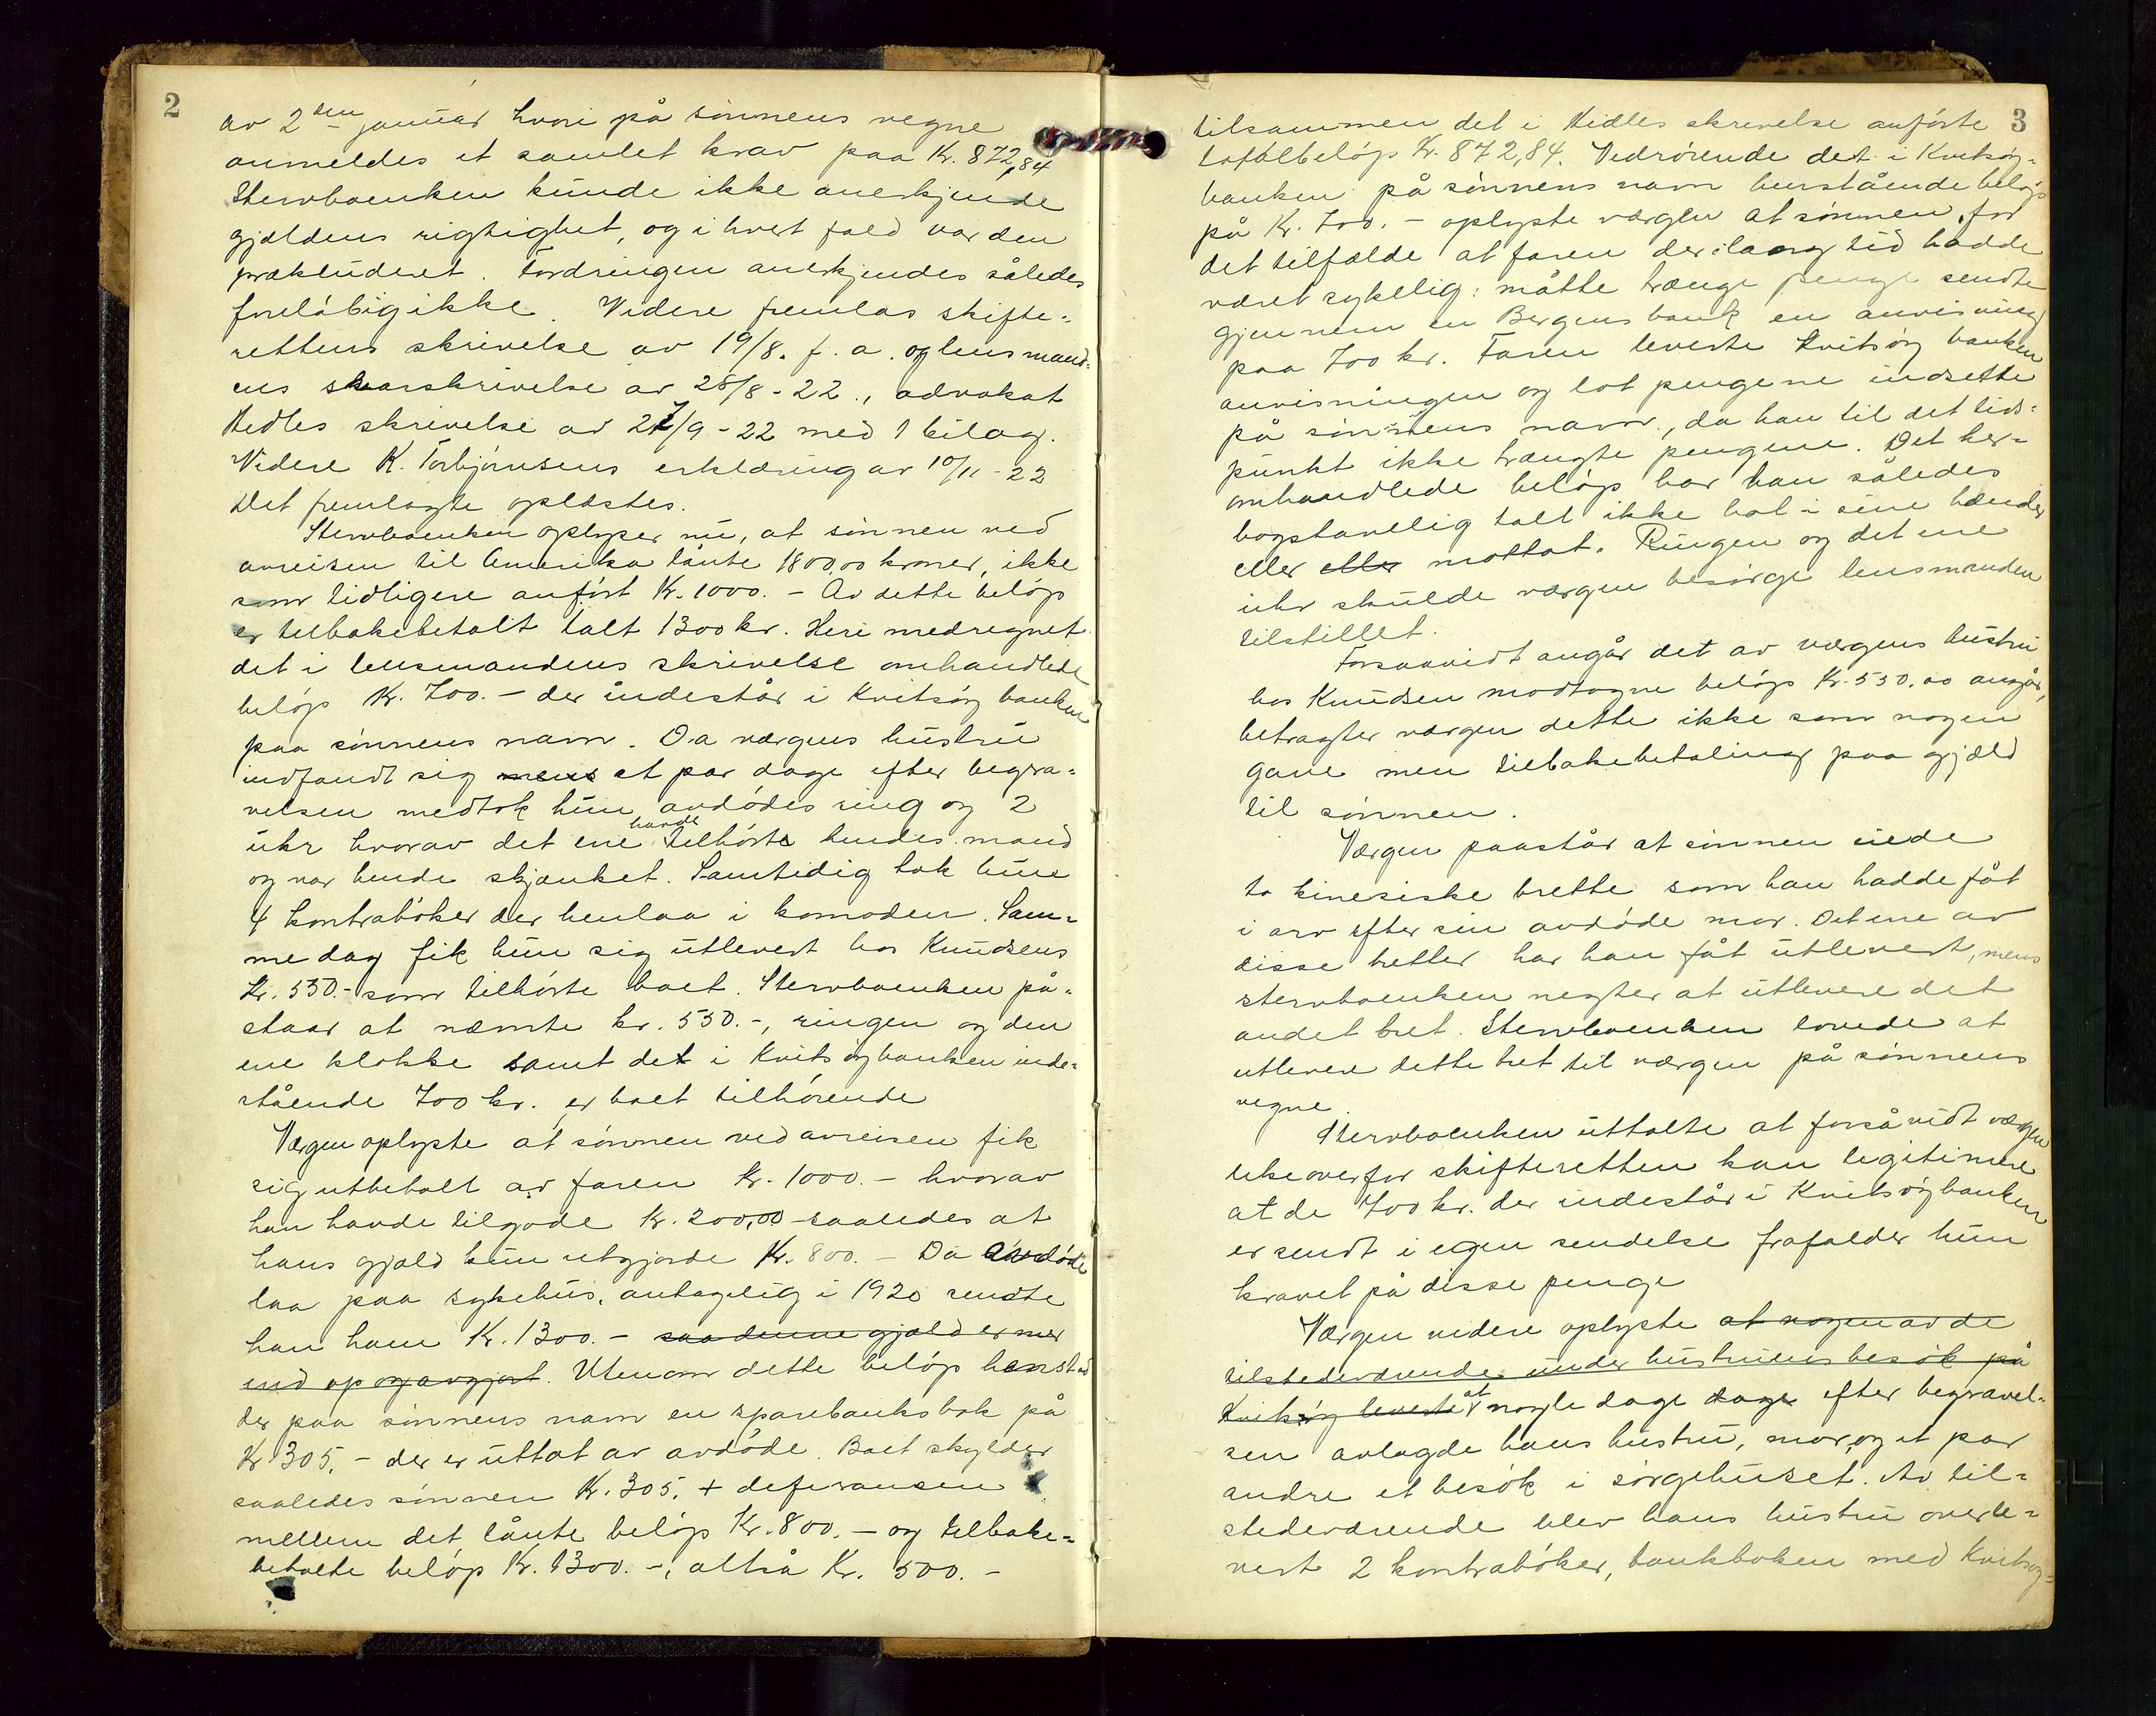 2
av 2den januar hvori på sönnens vegne
anmeldes et samlet krav paa Kr. 872,84
Stervboenken kunde ikke anerkjende
gjældens rigtighet, og i hvert fald var den
prækluderet. Fordringen anerkjendes således
foreløbig ikke. Videre fremlas skifte-
rettens skrivelse av 19/8. f. a. og lensmand-
ens svarskrivelse av 28/8-22., advokat
Hidles skrivelse av 27/9-22 med 1 bilag.
Videre K. Torbjörnsens erklæring av 10/11-22
Det fremlagte oplæstes.
Stervboenken oplyser nu, at sönnen ved
avreisen til Amerika lånte 1800,00 kroner, ikke
som tidligere anfört Kr. 1000.- Av dette belöp
er tilbakebetalt talt 1300 kr. Heri medregnet
det i lensmandens skrivelse omhandlede
belöp Kr. 700.- der indestår i Kvitsöy banken
paa sönnens navn. Da værgens hustru
indfandt sig mens et par dage efter begra-
velsen medtok hun avdödes ring og 2
uhr hvorav det ene havde tilhörte hendes mand
og var hende skjænket. Samtidig tok hun
4 kontraböker der henlaa i komoden. Sam-
me dag fik hun sig utlevert hos Knudsens
Kr. 550.- som tilhörte boet. Stervboenken på-
staar at nævnte kr. 550.-, ringen og den
ene klokke samt det i Kvitsöybanken inde-
stående 700 kr. er boet tilhörende
Værgen oplyste at sönnen ved avreisen fik
sig utbetalt av faren Kr. 1000.- hvorav
han havde tilgode Kr. 200,00 saaledes at
hans gjæld kun utgjorde Kr. 800.- Da avdöde
laa paa sykehus, antagelig i 1920 sendte
han ham Kr. 1300.- saa denne gjæld er mer
end op og avgjort. Utenom dette belöp henstod
der paa sönnens navn en sparebanksbok på
Kr 305.- der er uttat av avdöde. Boet skylder
saaledes sönnen Kr. 305. + deferansen
mellem det lånte belöp Kr. 800.- og tilbake-
betalte belöp Kr. 1300.-, altså Kr. 500.-
3
tilsammen det i Hidles skrivelse anförte
totalbelöp Kr. 872,84. Vedrörende det i Kvitsöy-
banken på sönnens navn henstående belöp
på Kr. 700.- oplyste værgen at sönnen, for
det tilfælde at faren der i lang tid hadde
været sykelig: måtte trænge penge sendte
gjennem en Bergens bank en anvisning
paa 700 kr. Faren leverte Kvitsöy banken
anvisningen og lot pengene indsette
på sönnens navn., da han til det tids-
punkt ikke trængte pengene. Det her-
omhandlede belöp har han således
bogstavelig talt ikke hat i sine hænder
eller eller mottat. Ringen og det ene
uhr skulde værgen besörge lensmanden
tilstillet.
Forsaavidt angår det av værgens hustru
hos Knudsen modtagne belöp Kr. 550.00 angår,
betragter værgen dette ikke som nogen
gave men tilbakebetaling paa gjæld
til sönnen.
Værgen paastår at sönnen eiede
to kinesiske brette som han hadde fåt
i arv efter sin avdöde mor. Det ene av
disse bretter har han fåt utlevert, mens
stervboenken negter at utlevere det
andet bret. Stervboenken lovede at
utlevere dette bret til værgen på sönnens
vegne.
Stervboenken uttalte at forsåvidt værgen
likeoverfor skifteretten kan legitimere
at de 700 kr. der indestår i Kvitsöybanken
er sendt i egen sendelse frafalder hun
kravet på disse penge
Værgen videre oplyste at nogen av de
tilstedeværende under hustruens besök på
Kvitsöy leverte at nogle dage dage efter begravel-
sen avlagde hans hustru, mor, og et par
andre et besök i sörgehuset. Av til-
stedeværende blev hans hustru overle-
vert 2 kontraböker, bankboken med Kvitsöy-